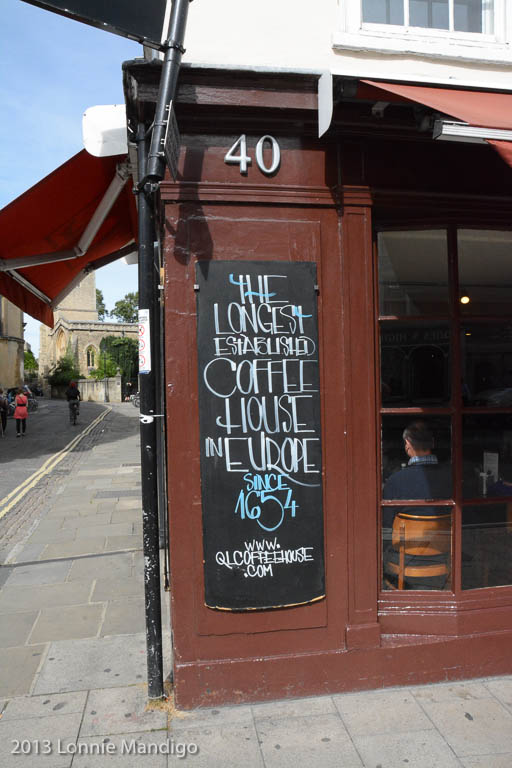 40
THE
LONGEST
ESTABLISHED
COFFEE
HOUSE
IN EUROPE
SINCE
1654
WWW.
QLCOFFEEHOUSE
.COM
2013 Lonnie Mandigo